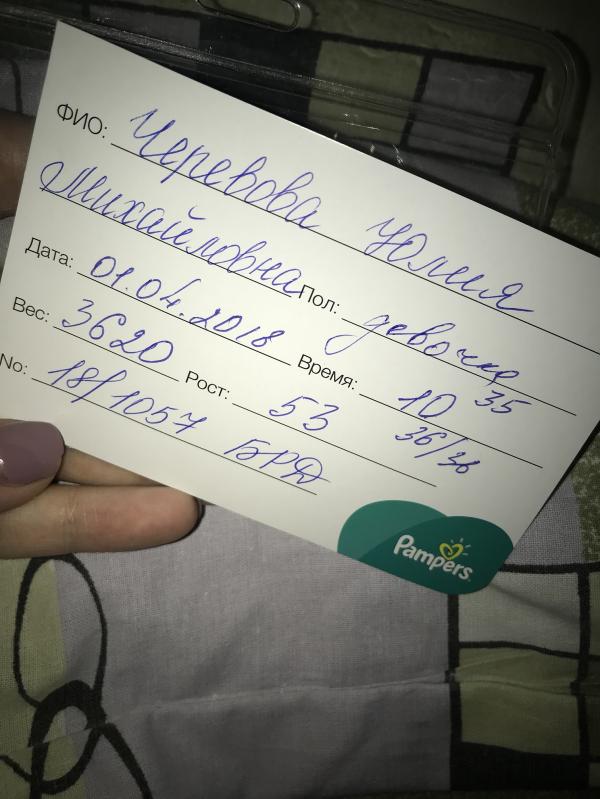 ФИО: Черевова Юлия
Михайловна Пол: девочка
Дата: 01.04.2018 Время: 10 35
Вес: 3620 Рост: 53 36/36
No: 18/1057 БРД
Pampers